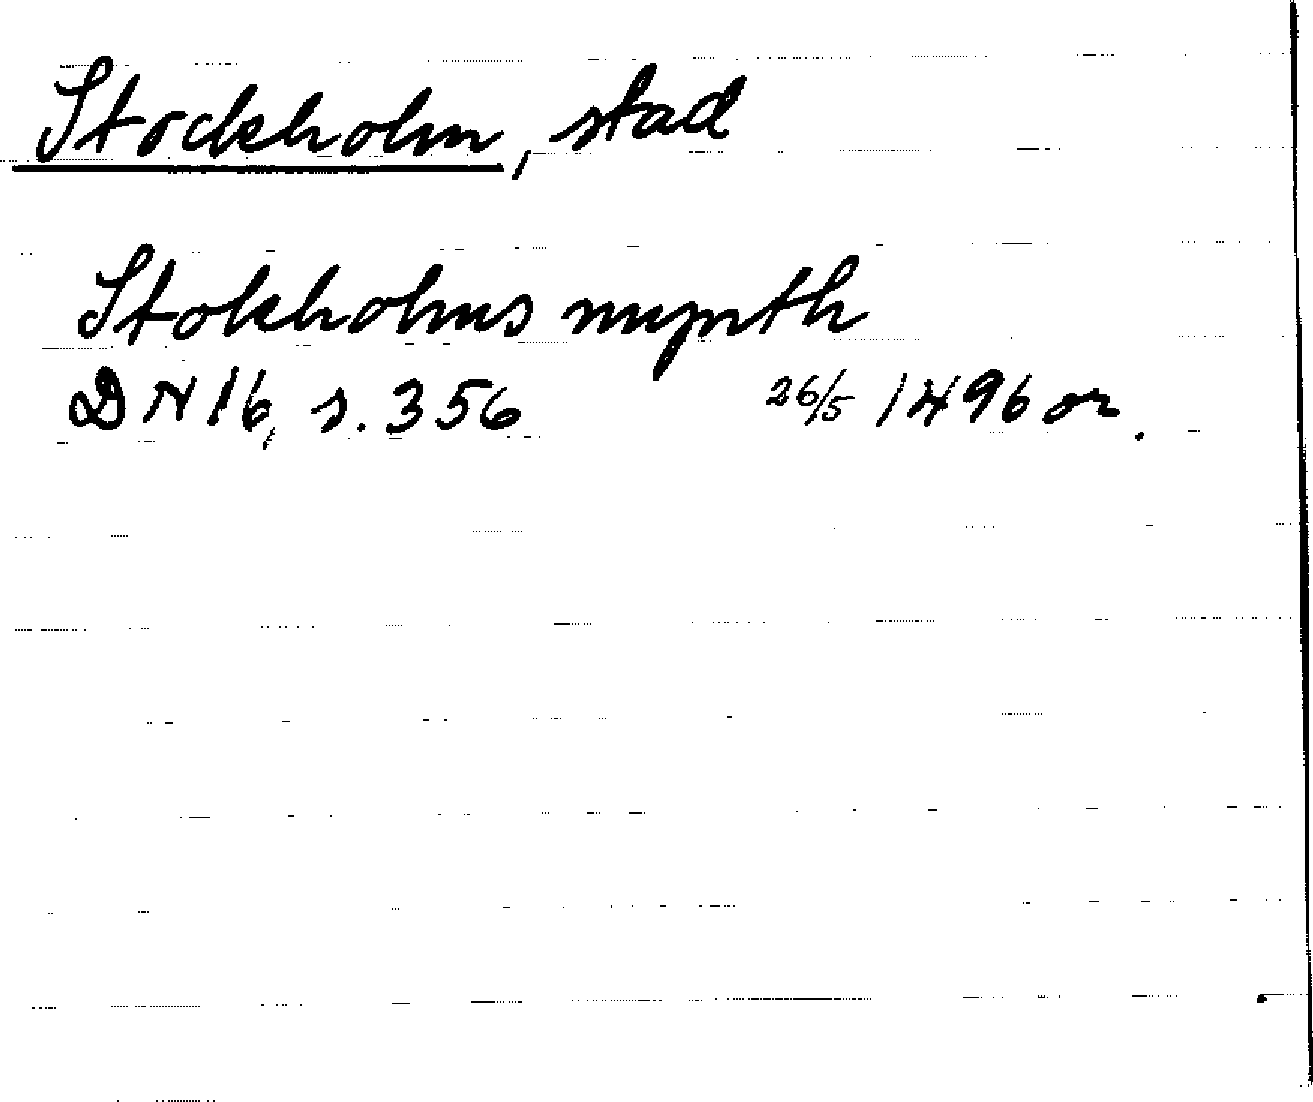 Stockholm, stad
Stokholms mynth
DN 16, s. 356 26/5 1496 or.